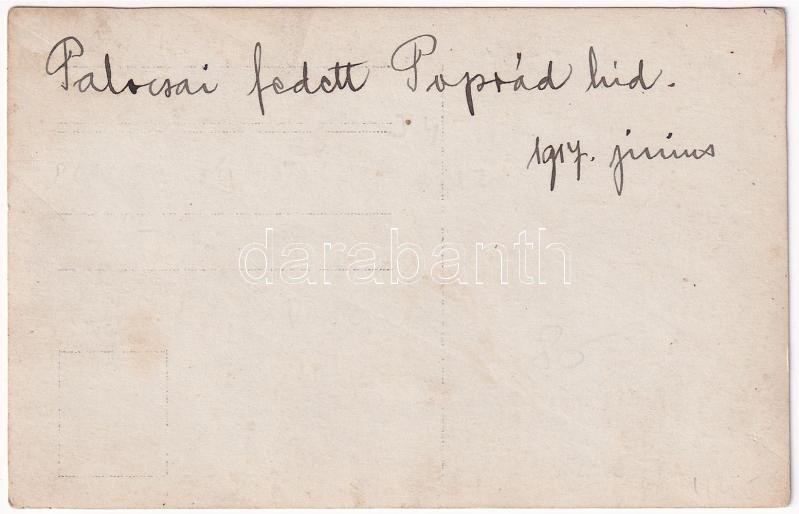 Palocsai fedett Poprád híd.
1917. június
darabanth
85